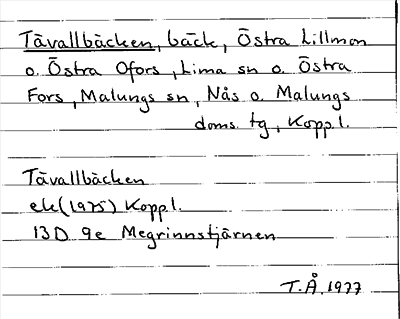 Tävallbäcken, bäck, Östra Lillmon
o. Östra Ofors, Lima sn o. Östra
Fors, Malungs sn, Nås o. Malungs
doms. tg, Koppl.
Tävallbäcken
ek(1975) Koppl.
13D 9e Megrinnstjärnen
T.Å. 1977